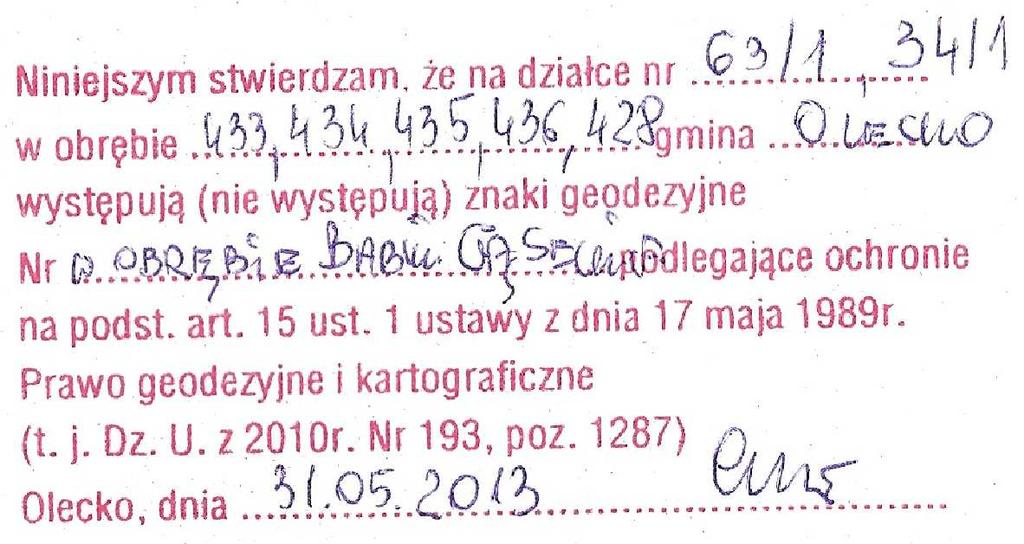 Niniejszym stwierdzam, że na działce nr 63/1, 34/1
w obrębie 433, 434, 435, 436, 428 gmina OLECKO
występują (nie występują) znaki geodezyjne
Nr W OBRĘBIE BABKI GĄSECKIE podlegające ochronie
na podst. art. 15 ust. 1 ustawy z dnia 17 maja 1989r.
Prawo geodezyjne i kartograficzne
(t. j. Dz. U. z 2010r. Nr 193, poz. 1287)
Olecko, dnia 31.05.2013